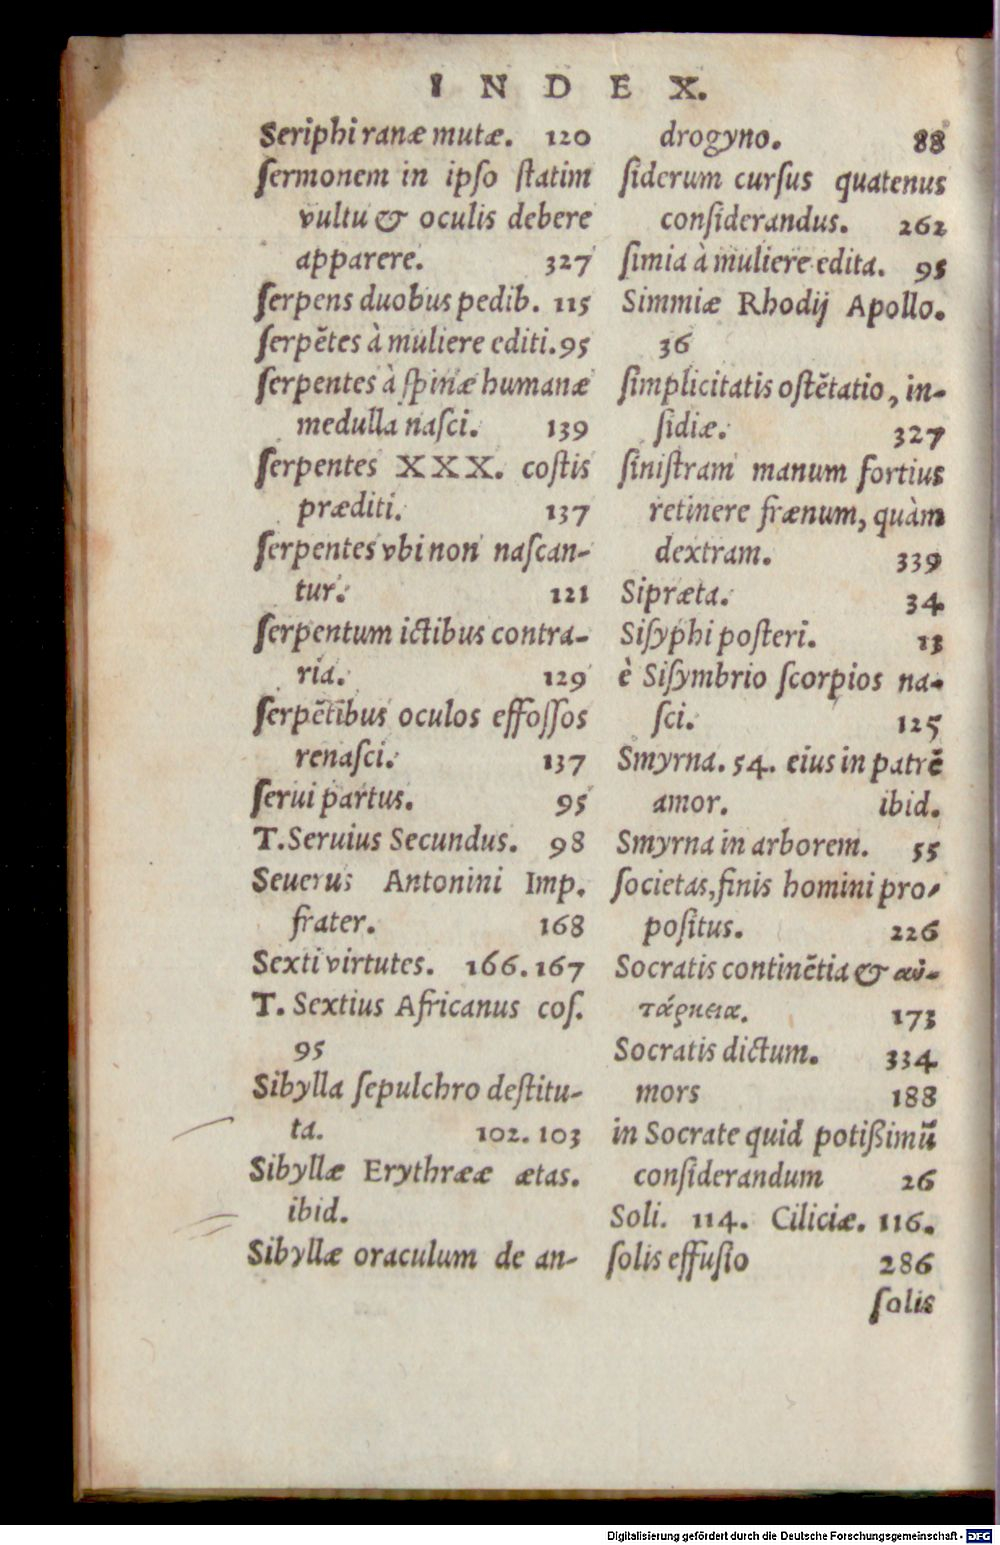 INDEX.
Seriphi ranæ mutæ. 120
ſermonem in ipſo ſtatim
vultu & oculis debere
apparere. 327
ſerpens duobus pedib. 115
ſerpẽtes à muliere editi. 95
ſerpentes à ſpinæ humanæ
medulla naſci. 139
ſerpentes XXX. coſtis
præditi. 137
ſerpentes vbi non naſcan-
tur. 121
ſerpentum ictibus contra-
ria. 129
ſerpẽtibus oculos effoſſos
renaſci. 137
ſerui partus. 95
T. Seruius Secundus. 98
Seuerus Antonini Imp.
frater. 168
Sexti virtutes. 166. 167
T. Sextius Africanus coſ.
95
Sibylla ſepulchro deſtitu-
ta. 102. 103
Sibyllæ Erythrææ ætas.
ibid.
Sibyllæ oraculum de an-
drogyno. 88
ſiderum curſus quatenus
conſiderandus. 262
ſimia à muliere edita. 95
Simmiæ Rhodij Apollo.
36
ſimplicitatis oſtẽtatio, in-
ſidiæ. 327
ſiniſtram manum fortius
retinere frænum, quàm
dextram. 339
Sipræta. 34
Siſyphi poſteri. 13
è Siſymbrio ſcorpios na-
ſci. 125
Smyrna. 54. eius in patrẽ
amor. ibid.
Smyrna in arborem. 55
ſocietas, finis homini pro-
poſitus. 226
Socratis continẽtia & αὐ-
τάρκεια. 173
Socratis dictum. 334
mors 188
in Socrate quid potißimũ
conſiderandum 26
Soli. 114. Ciliciæ. 116.
ſolis effuſio 286
ſolis
Digitalisierung gefördert durch die Deutsche Forschungsgemeinschaft - DFG